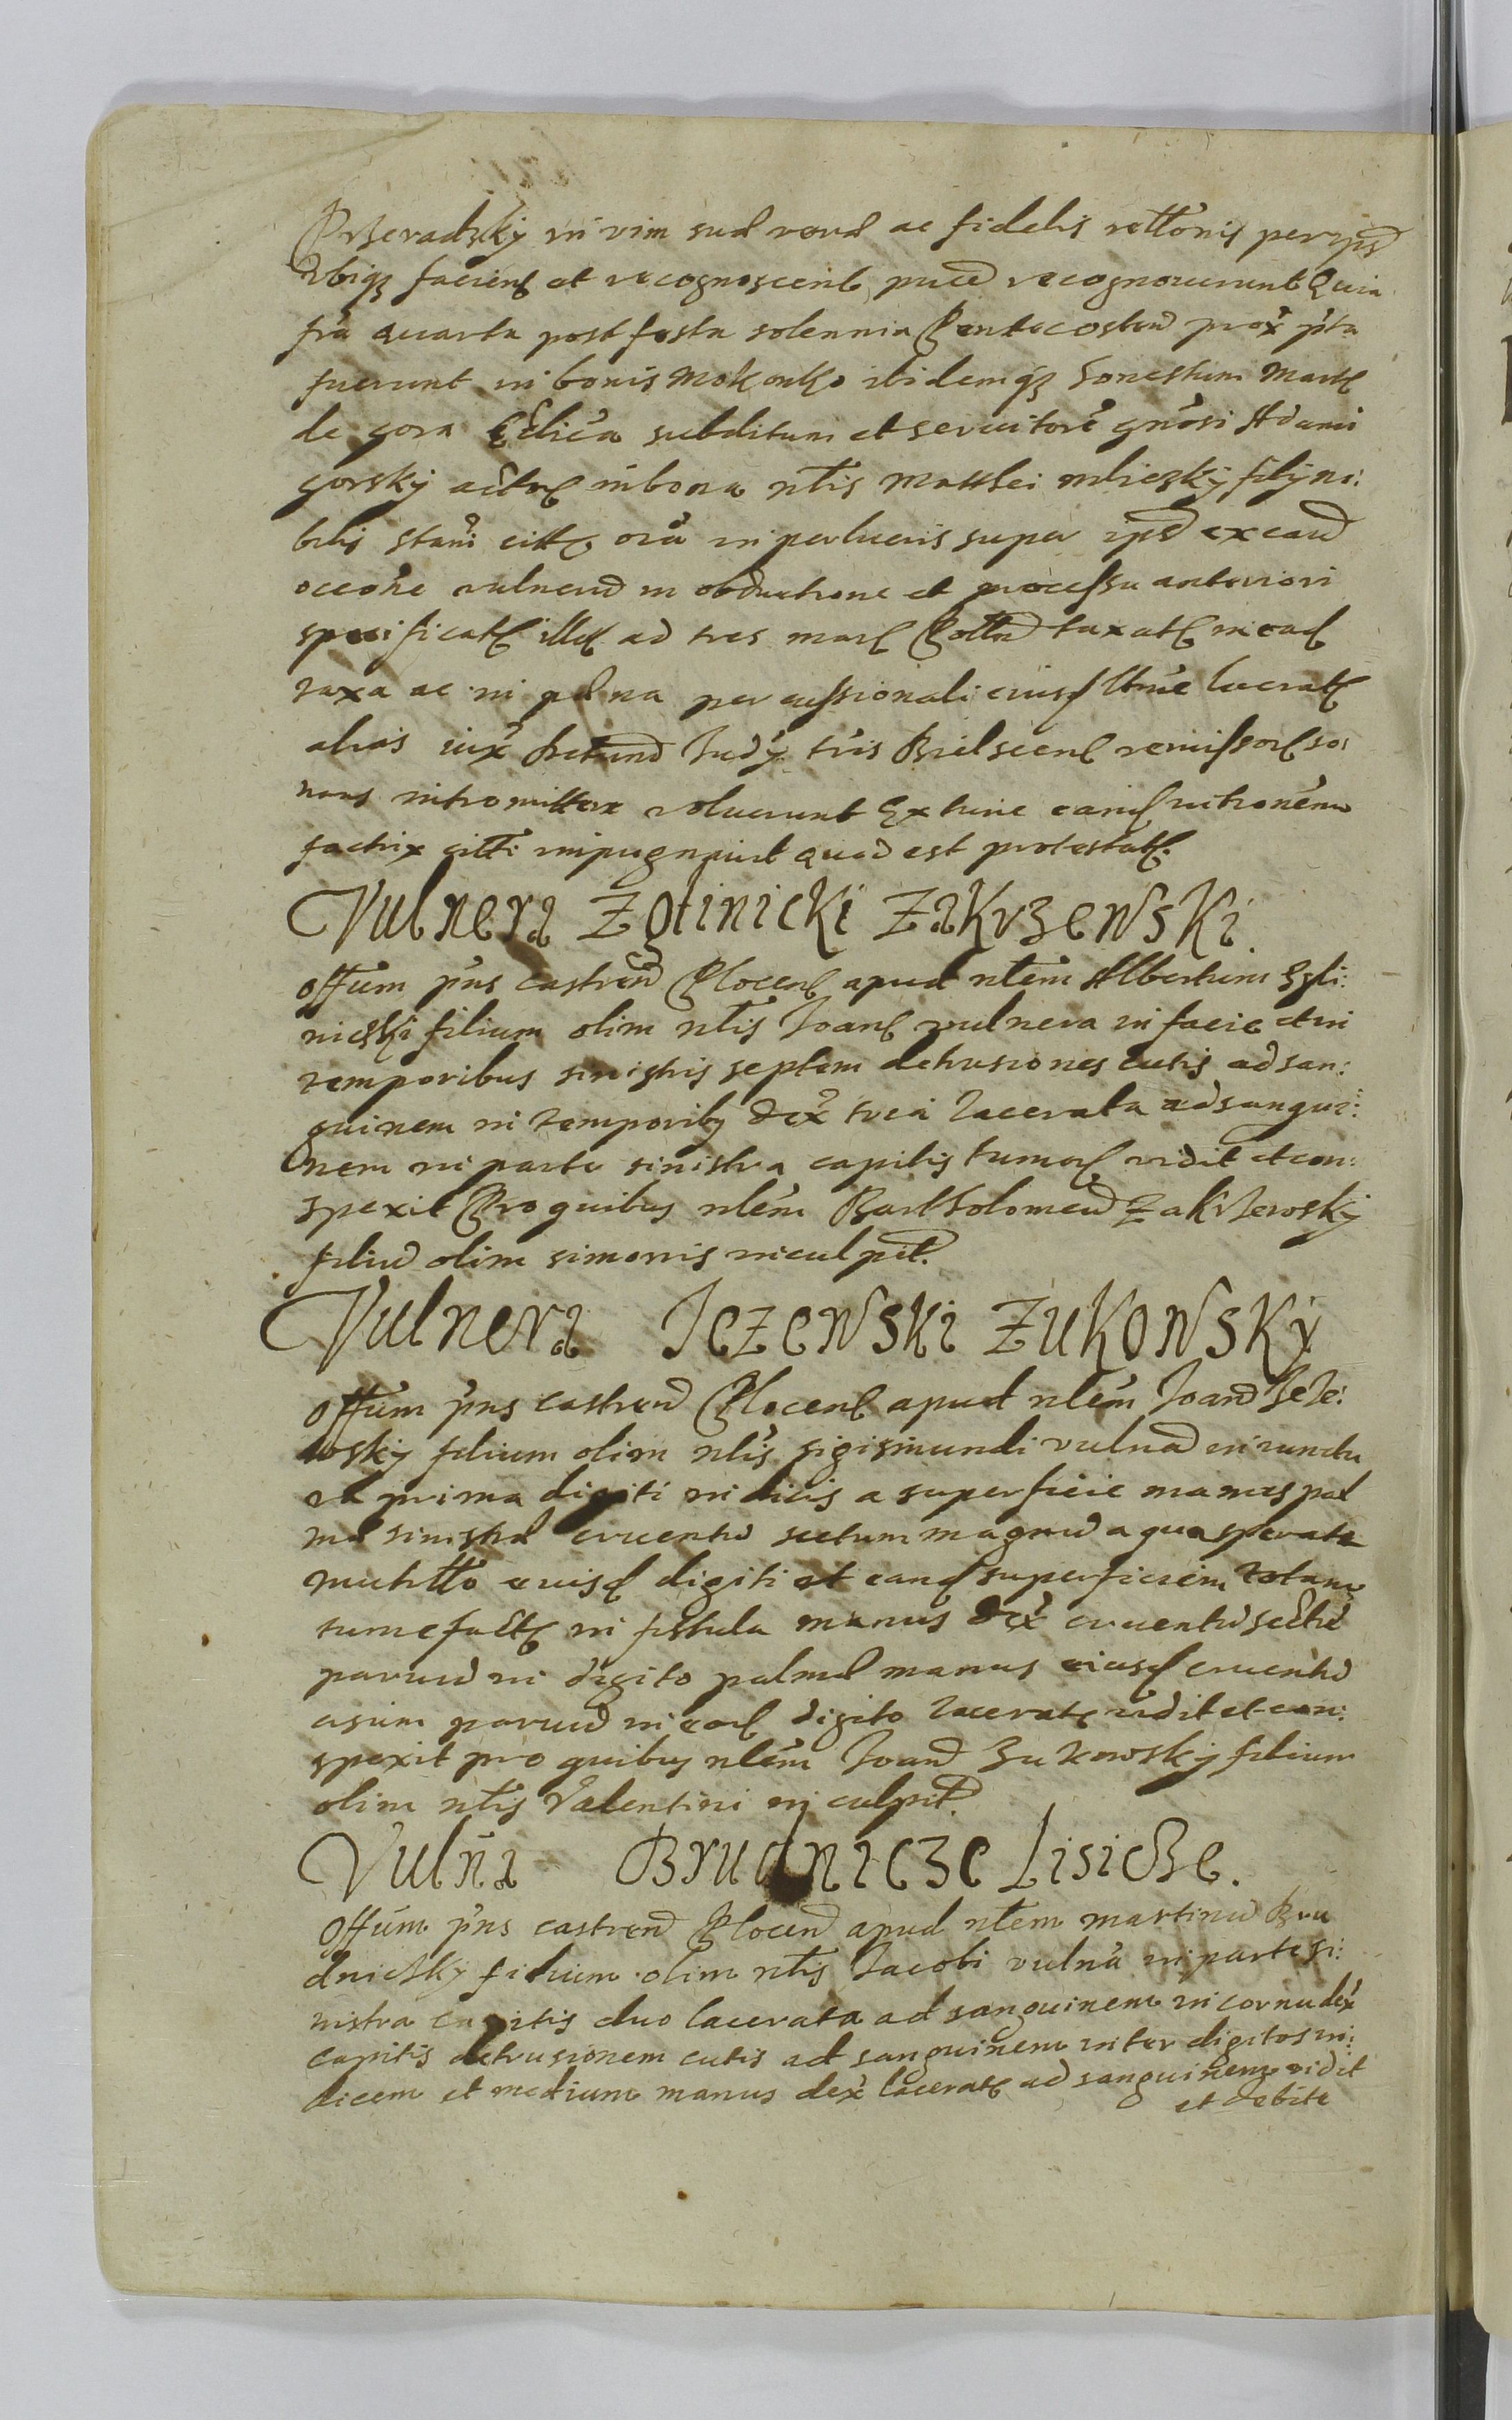 Przeradzky in vim suae verae ac fidelis rttonis per ips
ubiq3 faciens et recognoscens recognoverunt Quia
fria quarta post festa solennia Pentecosten prox pta
fuerunt in bonis Mokowko ibidemq3 honestum Mart
de gora subditum et servitore gnosi Adami
gorsky in bona nlis Matthei mliczky filij no:
bilis stani in perlucris super ips ex
occone vulnerum in obductione et processu anteriori
specificat ad tres marc taxat in ead
taxa ac in paena percussionali eiusd lucrat
alias iux Judy tris Bielscens remissor so:
nans intromittere voluerunt Ex tunc eand intronem
factrix impugnavit quod est protestat.
Vulnera Zglinicki Zakrzewski.
Offum pns castren Plocens apud nlem Albertum Zgli:
niczki filium olim nlis Joans vulnera in facie et in
temporibus sinistris septem detrusiones cutis ad san:
guinem in temporibus dex tria lacerata ad sangui:
nem in parte sinistra capitis tumor vidit et con:
spexit Pro quibus nlem Bartholomeum Zakrzewsky
filium olim simonis inculpit.
Vulnera Jezewski Zukowsky
Offum pns castren Plocens apud nlem Joan Jeze:
wsky filium olim nlis sigismundi vulnera in iunctu
ra prima digiti indicis a superficie manus pal
mae sinistrae cruentum sectum magnum a qua sperata
mutilto eiusd digiti et eand superficiem totam
tumefact in fistula manus dex cruentum sectum
parvum in digito palmae manus eiusd cruentum
cisum parvum in eod digito lacerat vidit et con:
spexit pro quibus nlem Joan Zukowsky filium
olim nlis Valentini inculpit.
Vulna Brudnicze Lisicze.
Offum pns castren Plocen apud nlem martinum Bru
dniczky filium olim nlis Jacobi vulna in parte si:
nistra capitis duo lacerata ad sanguinem in cornu dex
capitis detrusionem cutis ad sanguinem inter digitos in:
dicem et medium manus dex lacerat ad sanguinem vidit
et debite